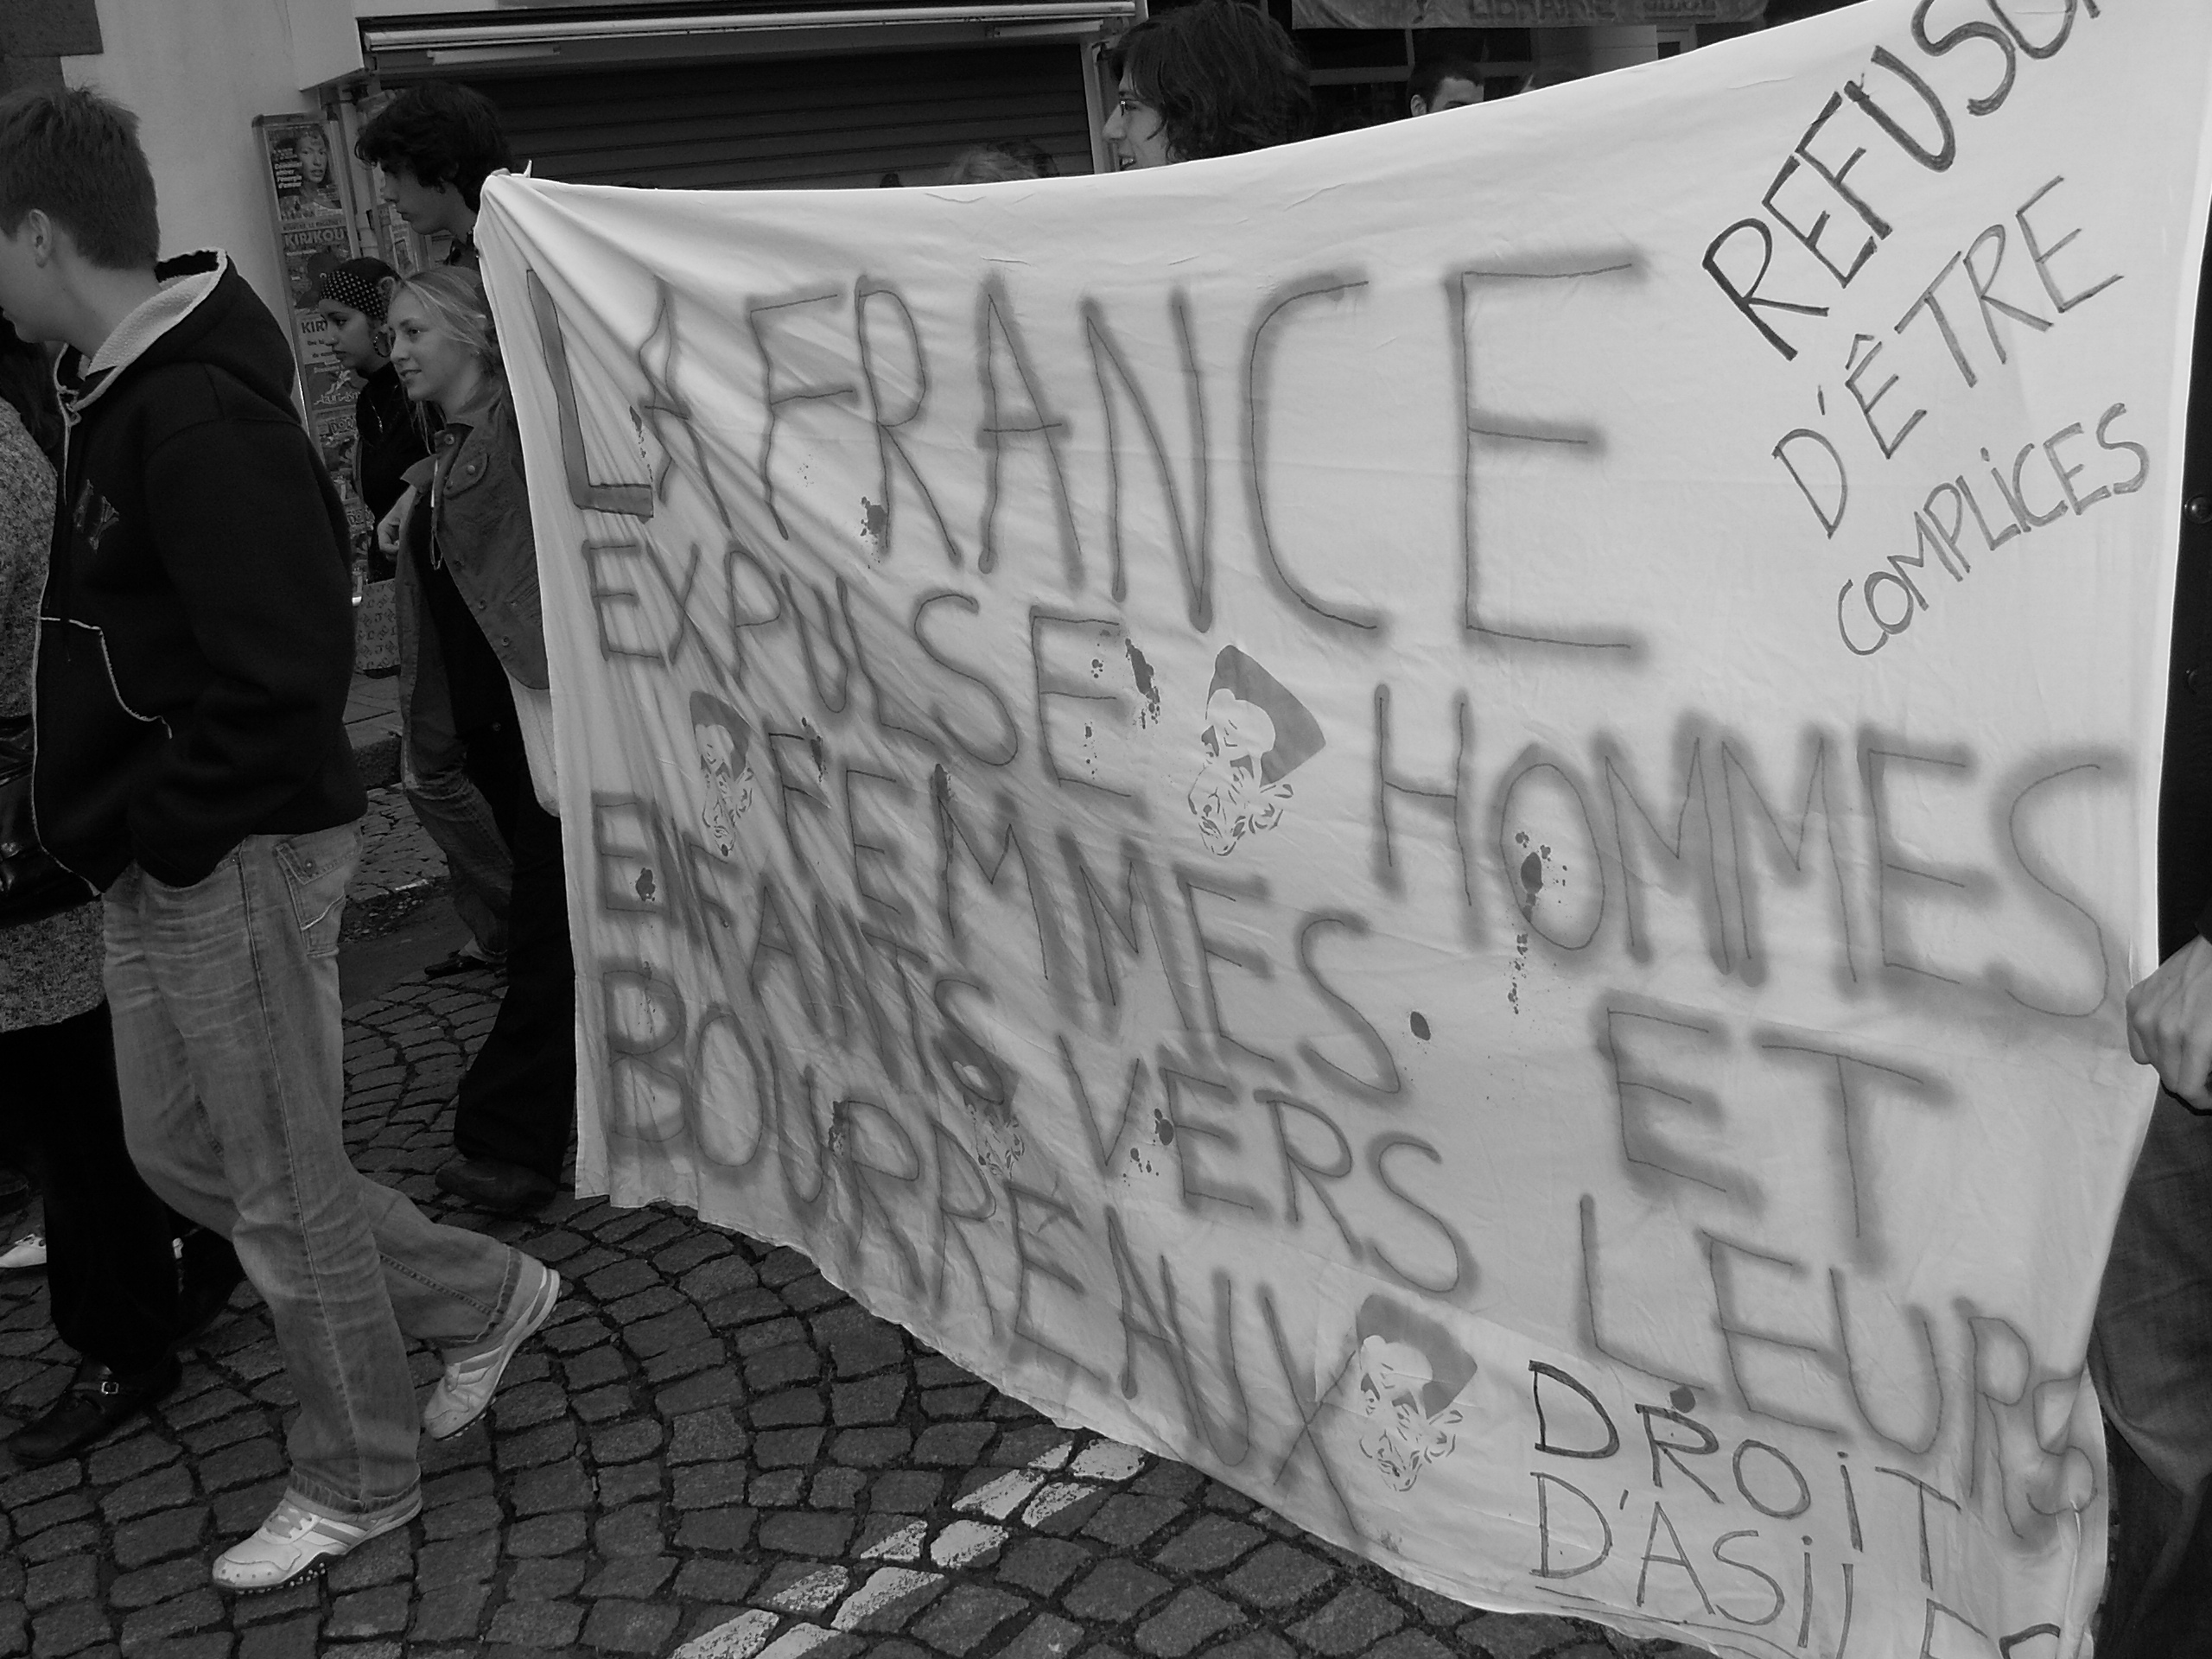 LA FRANCE
EXPULSE HOMMES
FEMMES ET
ENFANTS VERS LEURS
BOURREAUX
REFUSO
D'ÊTRE
COMPLiCES
DROiT
D'ASiLE
KIRIKOU
KIR
LIBRAIRIE